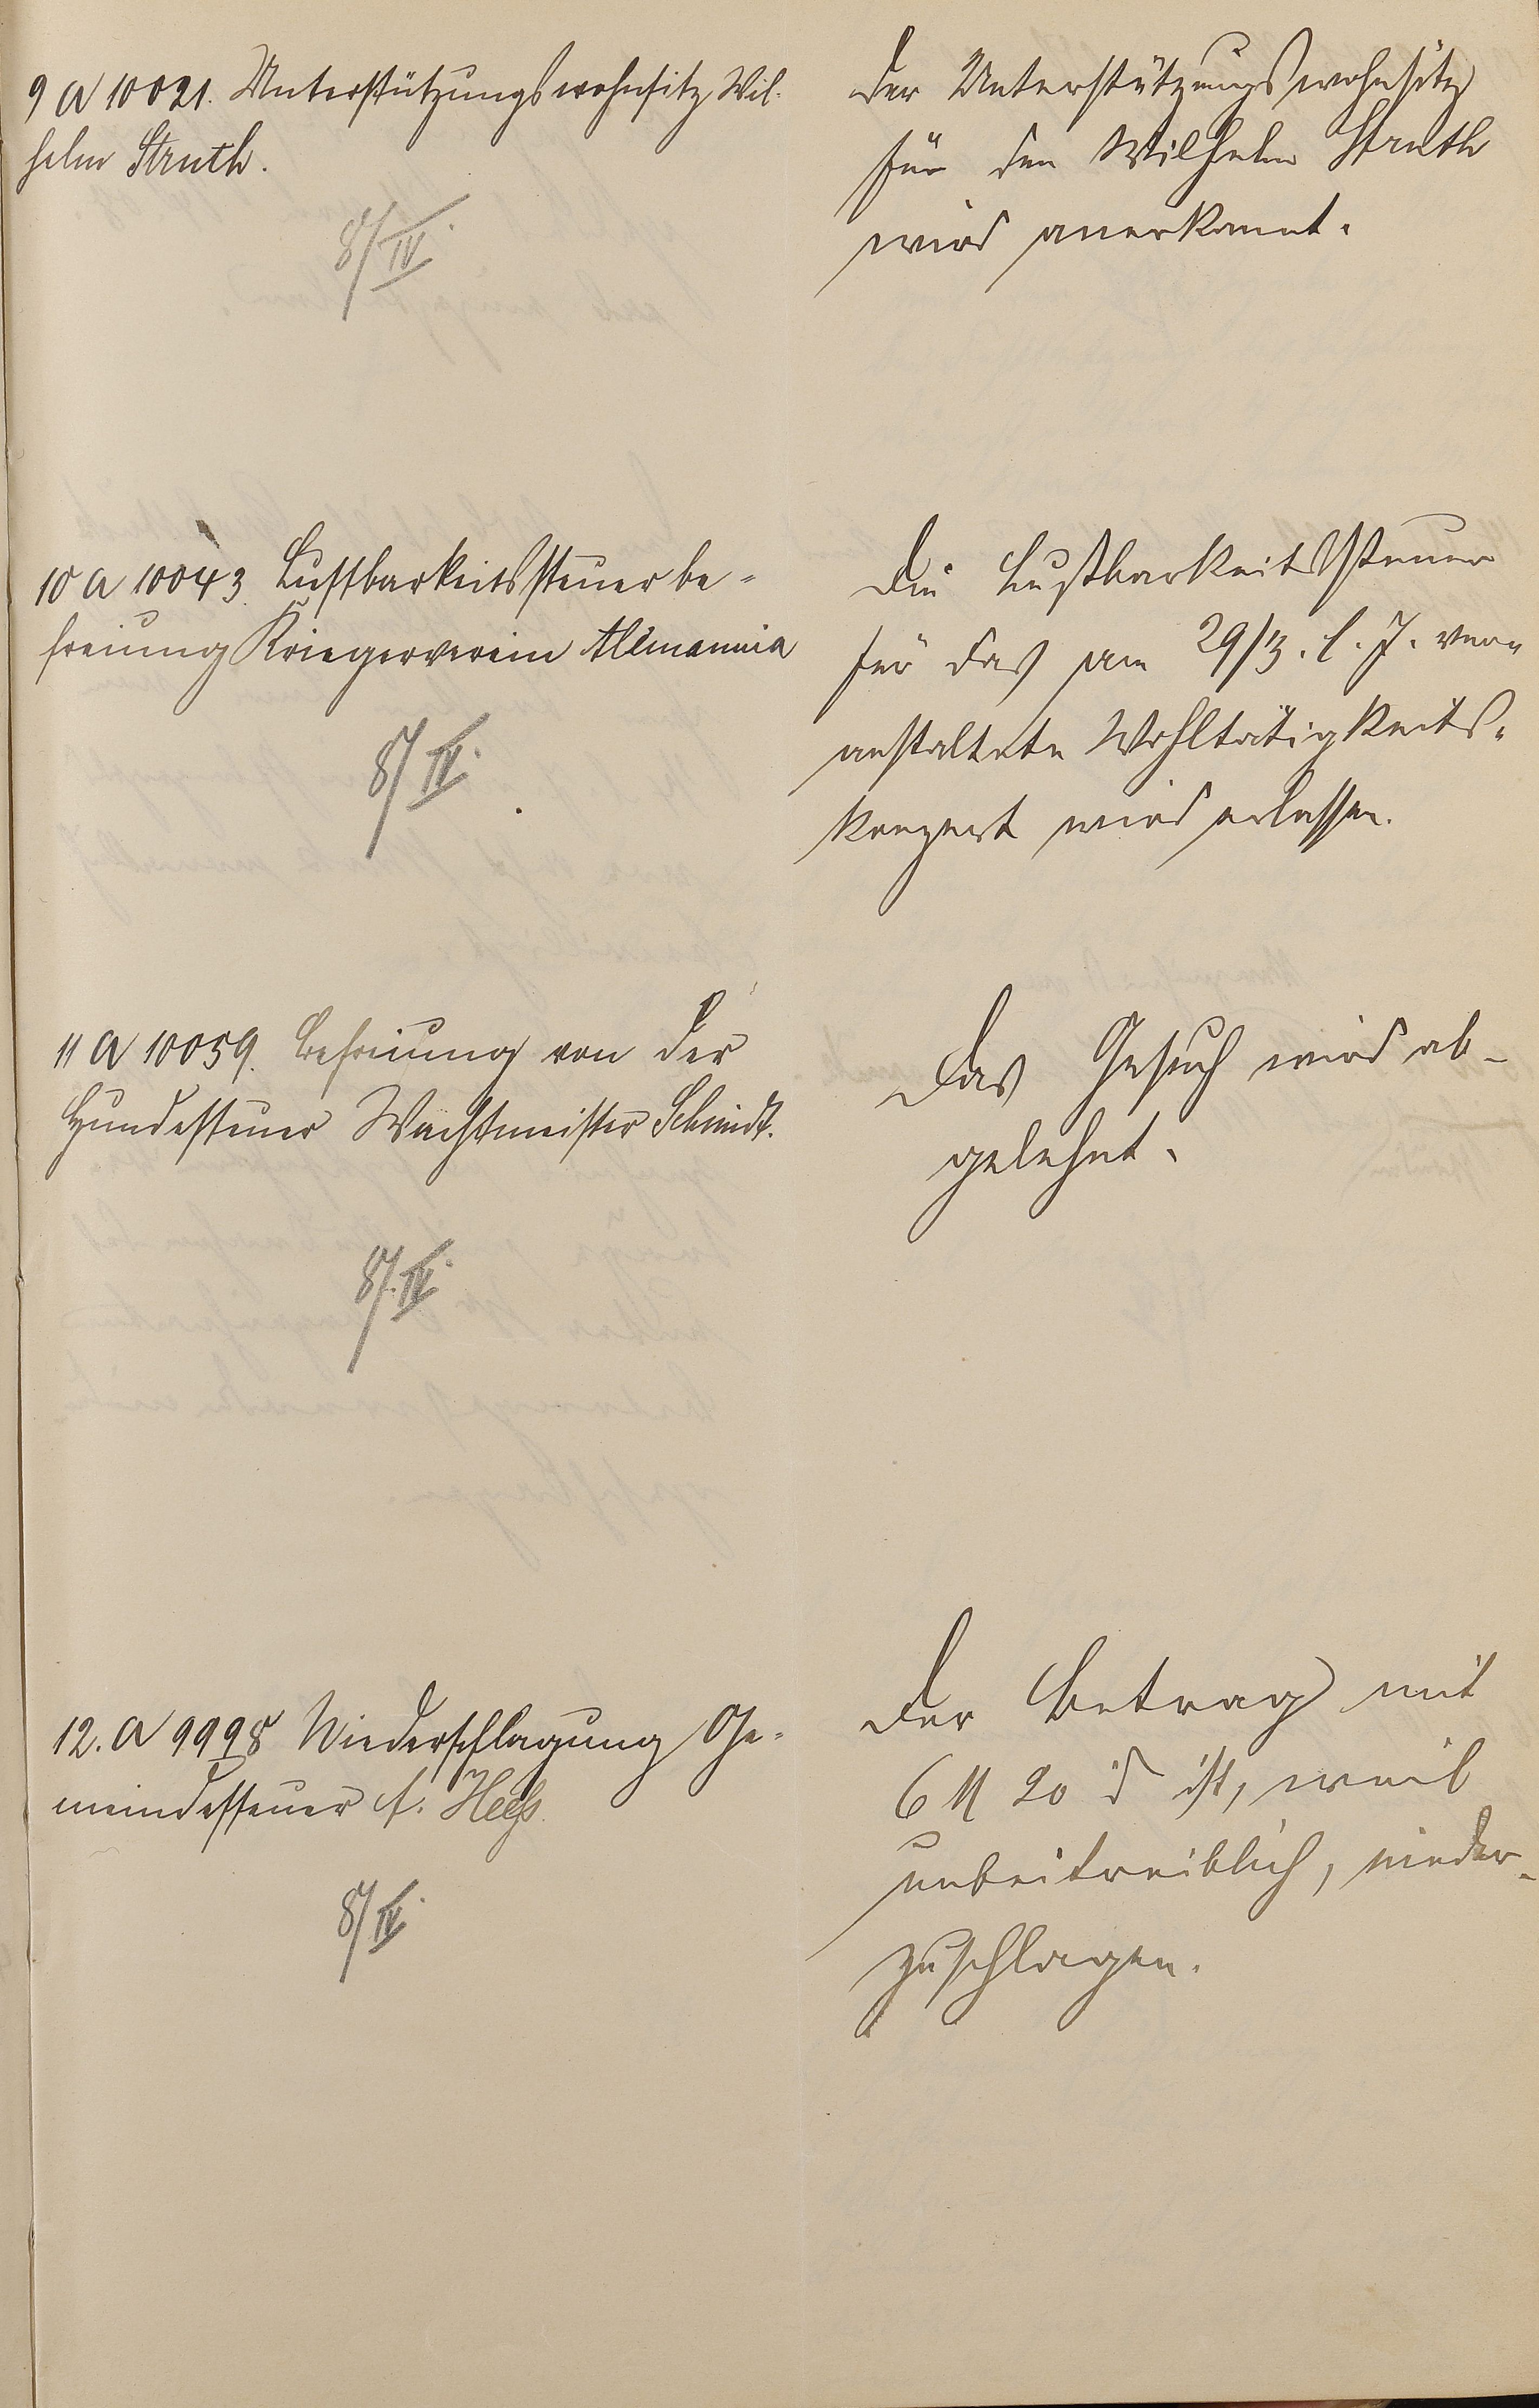 9 A 10021. Unterstützungswohnsitz Wil-
helm Struth.
8/IV.
Der Unterstützungswohnsitz
für den Wilhelm Struth
wird anerkannt.
10 A 10043 Lustbarkeitssteuerbe-
freiung Kriegerverein Allemannia
8/IV.
Die Lustbarkeitssteuer
für das am 29/3. l. J. ver-
anstaltete Wohltätigkeits-
konzert wird erlassen.
11 A 10059. Befreiung von der
Hundesteuer Wachtmeister Schmidt.
8/IV.
Das Gesuch wird ab-
gelehnt.
12. A 9998 Niederschlagung Ge-
meindesteuer A. Heeß.
8/IV.
Der Betrag mit
6 M 20 ₰ ist, weil
unbeitreiblich, nieder-
zuschlagen.